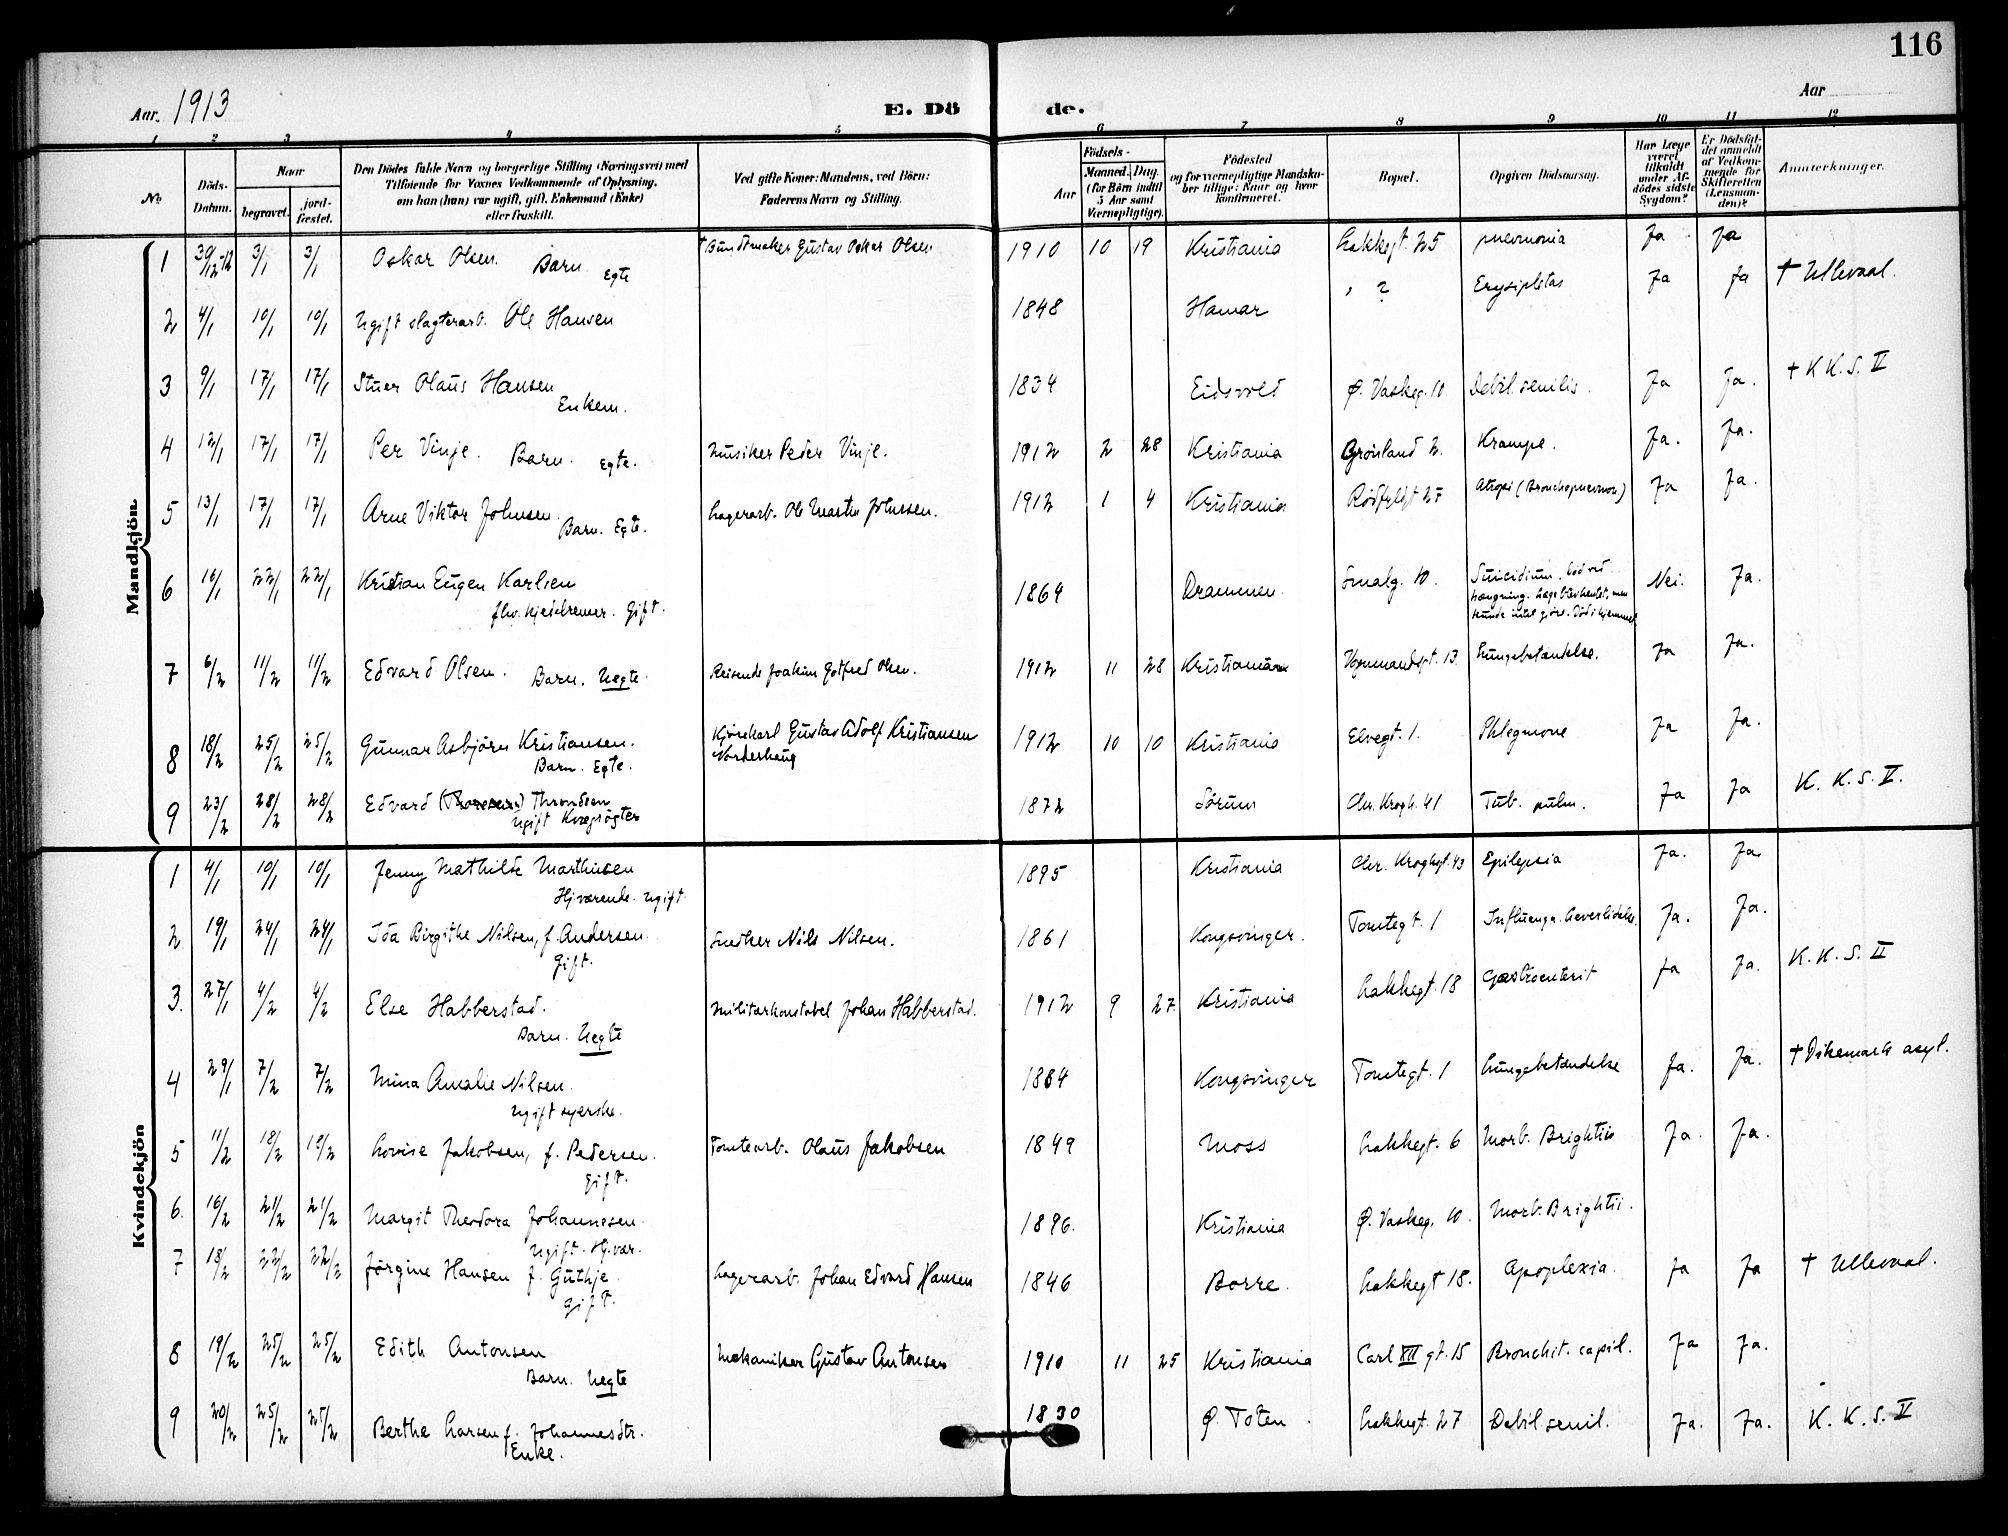 116
Aar. 1913
E. Dö
de.
Aar
1 2 3 4 5 6 7 8 9 10 11 12
No.
Döds-Datum.
Naar
begravet.
jord-fæstet.
Den Dödes fulde Navn og borgerlige Stilling (Næringsvei) med
Tilföiende for Voxnes Vedkommende af Oplysning,
om han (hun) var ugift, gift, Enkemand (Enke)
eller fraskilt.
Ved gifte Koner: Mandens, ved Börn:
Faderens Navn og Stilling.
Födsels-
Aar
Maaned. Dag.
(for Börn indtil
5 Aar samt
Værnepligtige).
Födested
og for værnepligtige Mandska-
ber tillige: Naar og hvor
konfirmeret.
Bopæl.
Opgiven Dödsaarsag.
Har Læge
været
tilkaldt
under Af-
dödes sidste
Sygdom?
Er Dödsfal-
det anmeldt
af Vedkom-
mende for
Skifteretten
(Lensman-
den)?
Anmærkninger.
Mandkjön.
1 30/12-12 3/1 3/1 Oskar Olsen. Barn Egte † Bundtmaker Gustav Oskar Olsen 1910 10 19 Kristiania Lakkegt. 25 pnevmonia Ja Ja
2 4/1 10/1 10/1 Ugift slagterarb. Ole Hansen 1848 Hamar ? Erysipelas Ja Ja † Ullevaal.
3 9/1 17/1 17/1 Stuer Olaus Hansen Enkem. 1834 Eidsvold Ø. Vaskeg. 10 Debil. senilis. Ja Ja. † K.K.S. V
4 12/1 17/1 17/1 Per Vinje. Barn. Egte. Musiker Peder Vinje. 1912 2 28 Kristiania Grönland 2. Krampe. Ja. Ja.
5 13/1 17/1 17/1 Arne Viktor Johnsen. Barn. Egte. Lagerarb. Ole Martin Johnsen. 1912 1 4 Kristiania Rödfyldgt 27 Atropi (Bronchopnevmon) Ja Ja.
6 16/1 22/1 22/1 Kristian Eugen Karlsen
fhv. kjedelrenser. Gift. 1869 Drammen. Smalg. 10. Suicidium. Död ved
hængning. Læge blev hentet, men
kunde intet gjöre. Död i hjemmet. Nei. Ja.
7 6/2 11/2 11/2 Edvard Olsen. Barn. Uegte. Reisende Joakim Gotfred Olsen. 1912 11 28 Kristiania Normandsgt. 13. Lungebetændelse. Ja Ja.
8 18/2 25/2 25/2 Gunnar Asbjörn Kristiansen.
Barn. Egte. Kjörekarl Gustav Adolf Kristiansen
Norderhaug 1912 10 10 Kristiania Elvegt. 1. Phlegmone Ja Ja.
9 23/2 28/2 28/2 Edvard Throndsen
ugift Kvægrögter 1872 Sörum Chr. Krogh. 41 Tub. pulm. Ja Ja K. K. S. V.
Kvindekjön
1 4/1 10/1 10/1 Jenny Mathilde Marthinsen
Hj.værende. Ugift. 1895 Kristiania Chr. Kroghgt. 43 Epilepsia Ja. Ja.
2. 19/1 24/1 24/1 Ida Birgithe Nilsen, f. Andersen.
Gift. Snedker Nils Nilsen. 1861 Kongsvinger. Tomtegt. 1 Influenza. Leverlidelse. Ja. Ja.
3. 27/1 4/2 4/2 Else Habberstad.
Barn. Uegte Militærkonstabel Johan Habberstad. 1912 9 27. Kristiania Lakkegt. 18 Gastroenterit Ja Ja. K. K. S. II
4 29/1 7/2 7/2 Mina Amalie Nilsen.
Ugift syerske. 1884 Kongsvinger Tomtegt. 1 Lungebetændelse Ja. Ja. † Dikemark asyl.
5 11/2 18/2 18/2 Lovise Jakobsen, f. Pedersen.
Gift. Tomtearb. Olaus Jakobsen 1849 Moss Lakkegt. 6 Morb. Brightii Ja. Ja.
6. 16/2 21/2 21/2 Margit Theodora Johannesen.
Ugift. Hj.vær. 1896. Kristiania Ø. Vaskeg. 10. Morb. Brightii.
7 18/2 22/2 22/2 Jörgine Hansen f. Guthje.
Gift. Lagerarb. Johan Edvard Hansen 1846 Borre. Lakkegt 18. Apoplexia. Ja Ja † Ullevaal.
8 19/2 25/2 25/2 Edith Antonsen
Barn. Uegte Mekaniker Gustav Antonsen 1910 11 25 Kristiania Carl XII gt. 15 Bronchit. capil. Ja Ja.
9 20/2 25/2 25/2 Berthe Larsen f. Johannesdtr.
Enke. 1830 Ø. Toten. Lakkegt. 27 Debil. senil. Ja. Ja. K. K. S. V